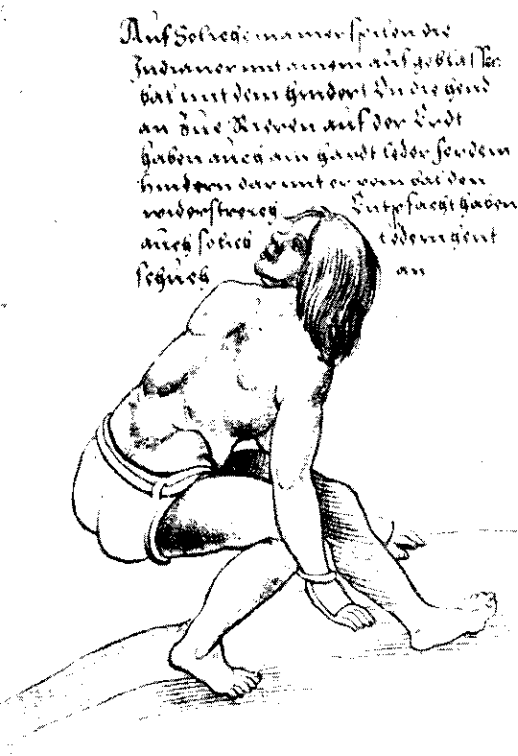 Auf Soliche manier spilen die
Indianer mit ainem auf geblassen
bal mit dem hindert On die hend
an Zue Rieren auf der Erdt
haben auch ain hardt leder for dem
hindern darmit er vom bal den
widerstreich Entpfacht haben
auch solich ledern hent
schuch an